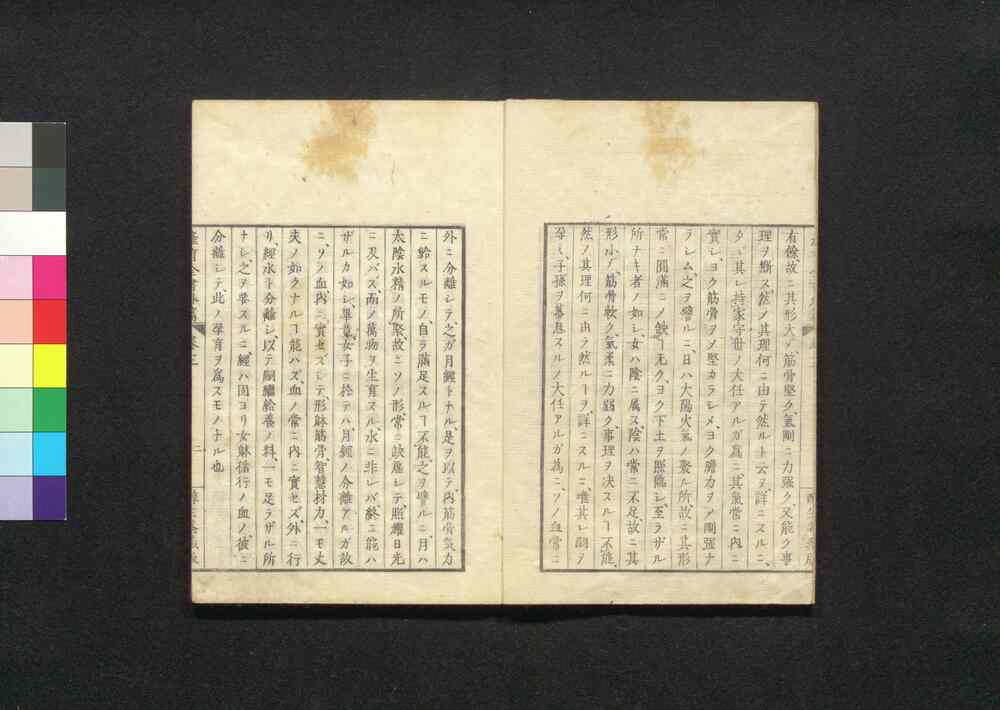 有餘、故ニ其形大ノ、筋骨堅ク、氣剛ニ力強ク又能ク事
理ヲ斷ス、然ノ其理何ニ由テ然ルト云ヲ、詳ニスルニ、
タヾ其レ持家守世ノ大任アルガ爲ニ、其氣常ニ内ニ
實シ、ヨク筋骨ヲノ堅カラシメ、ヨク膽力ヲノ剛强ナ
ラシム、之ヲ譬ルニ、日ハ大陽火氣ノ聚ル所、故ニ其形
常ニ圓滿ニノ缺ヿ无ク、ヨク下土ヲ照臨シ、至ラザル
所ナキ者ノ如シ、女ハ陰ニ属ス、陰ハ常ニ不足、故ニ其
形小ノ、筋骨軟ク、氣柔ニ力弱ク、事理ヲ决スルヿ不能、
然ノ其理何ニ由ラ然ルヿヲ、詳ニスルニ、唯其レ嗣ヲ
孕ミ、子孫ヲ蕃息スルノ大任アルガ爲ニ、ソノ血常ニ
外ニ分離シテ、之ガ月經トナル、是ヲ以テ、内筋骨氣力
ニ給スルモノ、自ラ滿足スルヿ不能、之ヲ譬ルニ、月ハ
太陰水精ノ所聚、故ニソノ形常ニ缺虚シテ、照耀日光
ニ及バズ、而ノ萬物ヲ生育スル、水ニ非レバ、終ニ能ハ
ザルカ如シ、畢竟女子ニ於テハ、月經ノ分離アルガ故
ニ、ソノ血内ニ實セズシテ、形躰筋骨、智慧材力、一モ丈
夫ノ如クナルヿ能ハズ、血ノ常ニ内ニ實セズ、外ニ行
リ、經水ト分離シ、以テ嗣繼給養ノ料、一モ足ラザル所
ナシ、之ヲ要スルニ、經ハ固ヨリ女躰循行ノ血ノ、彼ニ
分離シテ、此ノ孕育ヲ爲スモノナル也